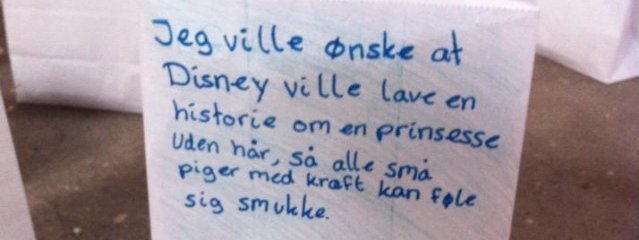 Jeg ville ønske at
Disney ville lave en
historie om en prinsesse
Uden hår, så alle små
piger med kræft kan føle
sig smukke.